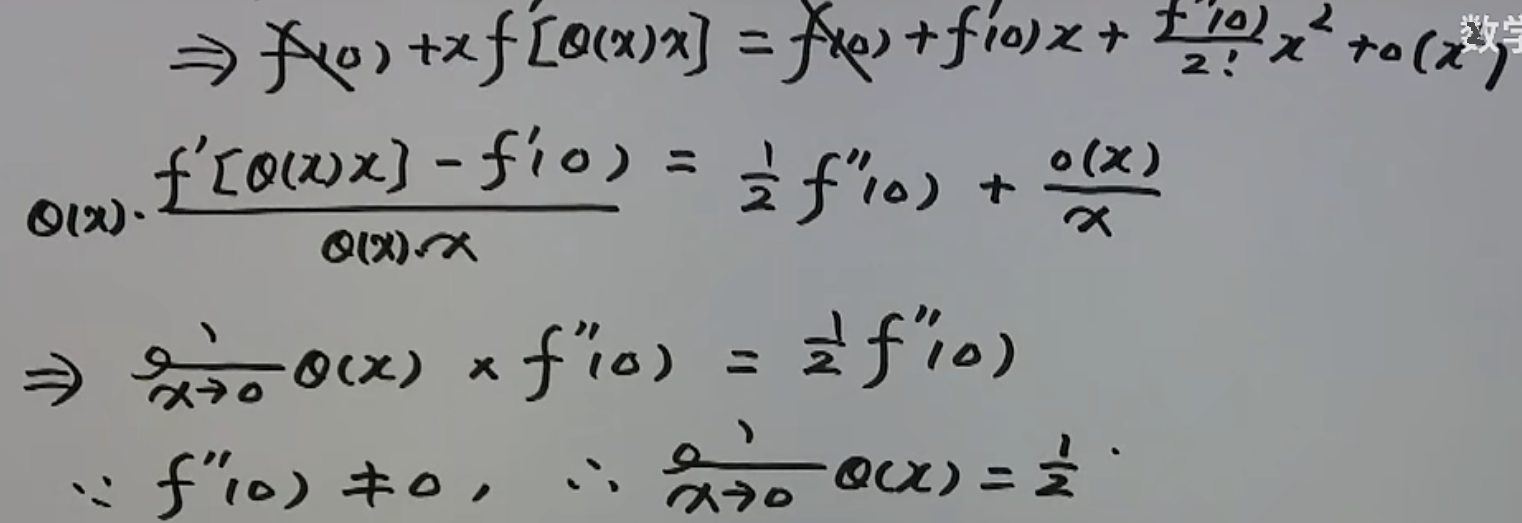 ⇒ f(0) + x f'[θ(x)x] = f(0) + f'(0)x + f''(0)/2! x² + o(x²)
θ(x)· f'[θ(x)x] - f'(0) / θ(x)·x = 1/2 f''(0) + o(x)/x
⇒ lim x→0 θ(x) × f''(0) = 1/2 f''(0)
∵ f''(0) ≠ 0, ∴ lim x→0 θ(x) = 1/2 .
数学